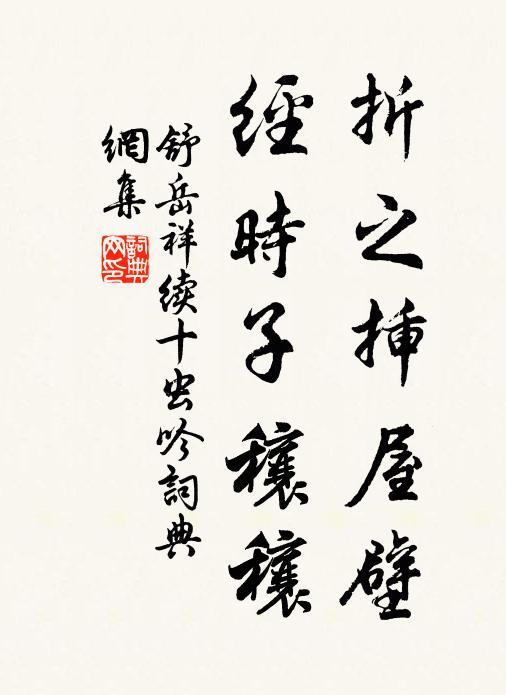 折之挿屋壁
經時子穰穰
舒岳祥续十虫吟詞典
網集
詞典网印